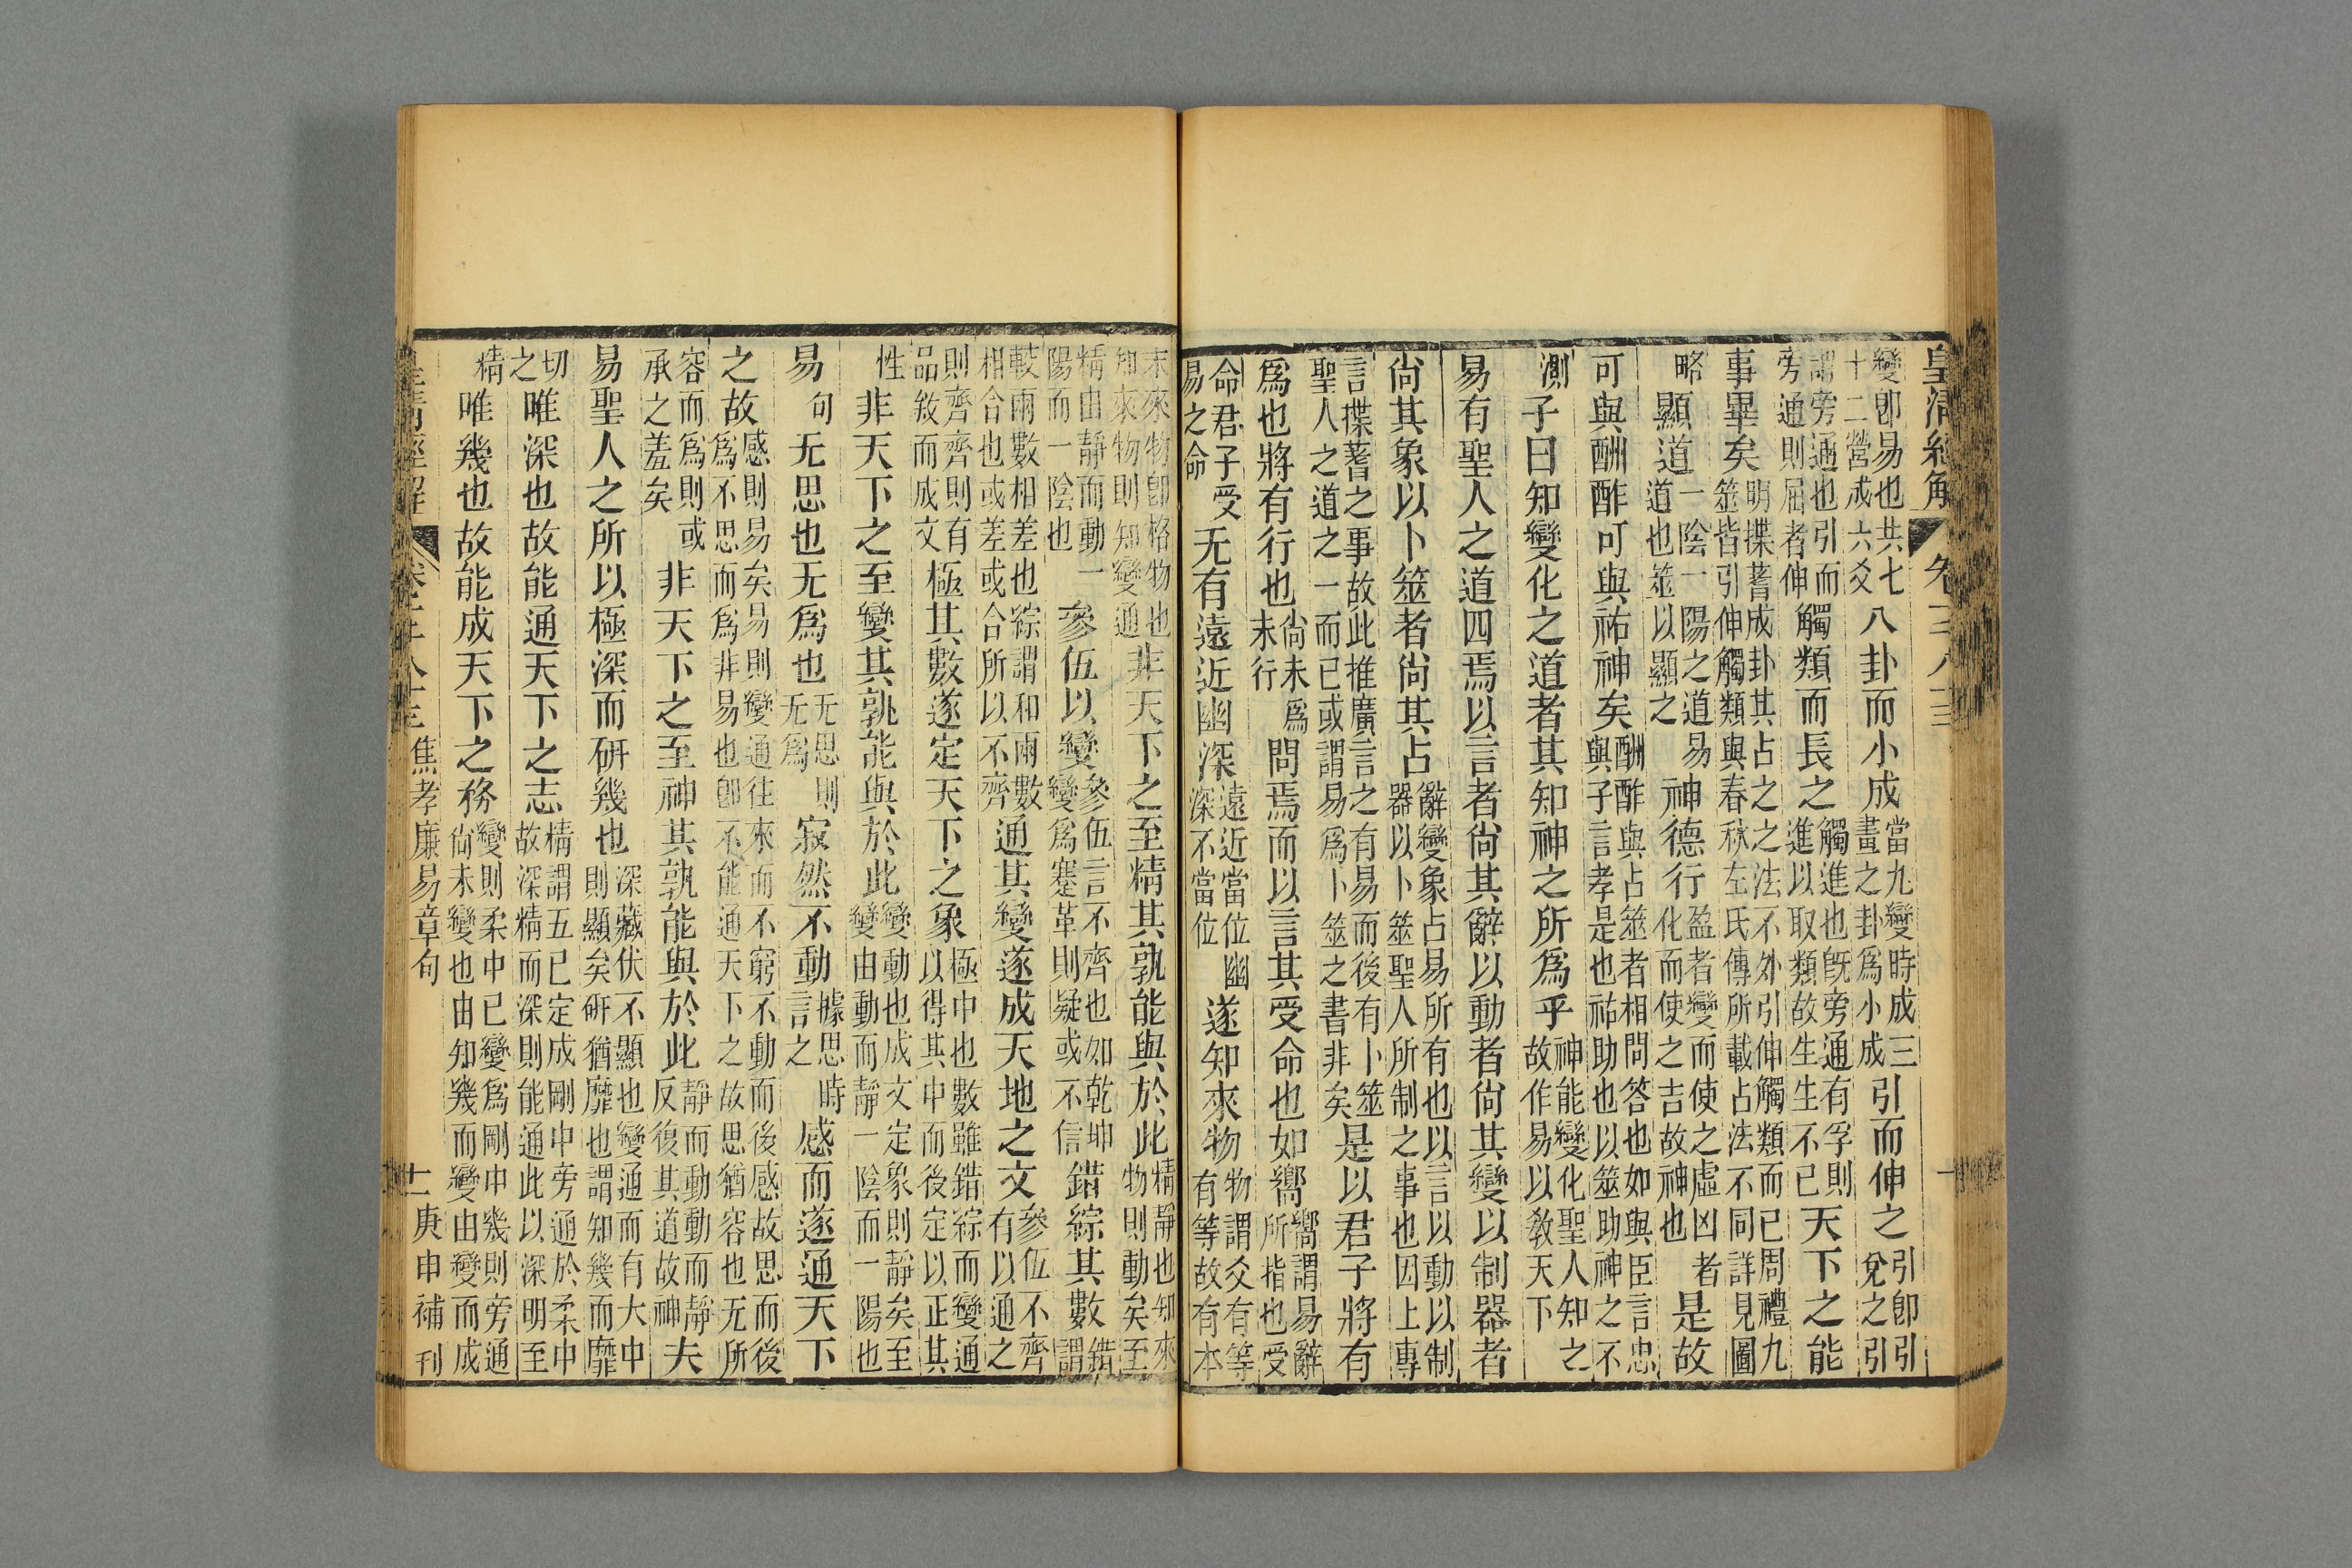 皇清經解
變卽易也共七十二營成六爻八卦而小成當九變時成三畫之卦爲小成引而伸之引卽引兌之引
謂旁通也引而旁通則屈者伸觸類而長之觸進也旣旁通有孚則進以取類故生生不已天下之能
事畢矣明揲蓍成卦其占之之法不外引伸觸類而已周禮九筮皆引伸觸類與春秋左氏傳所載占法不同詳見圖
略顯道一陰一陽之道易道也筮以顯之神德行盈者變而使之虛凶者化而使之吉故神也是故
可與酬酢可與祐神矣酬酢與占筮者相問答也如與臣言忠與子言孝是也祐助也以筮助神之不
測子曰知變化之道者其知神之所爲乎神能變化聖人知之故作易以敎天下
易有聖人之道四焉以言者尙其辭以動者尙其變以制器者
尙其象以卜筮者尙其占辭變象占易所有也以言以動以制器以卜筮聖人所制之事也因上專
言揲蓍之事故此推廣言之有易而後有卜筮聖人之道之一而已或謂易爲卜筮之書非矣是以君子將有
爲也將有行也尙未爲未行問焉而以言其受命也如嚮嚮謂易辭所指也受
命君子受易之命无有遠近幽深遠近當位幽深不當位遂知來物物謂爻有等有等故有本
末來物卽格物也知來物則知變通非天下之至精其孰能與於此精靜也知來物則動矣至
精由靜而動一陽而一陰也參伍以變參伍言不齊也如乾坤變爲蹇革則疑或不信錯綜其數錯謂
較兩數相差也綜謂和兩數相合也或差或合所以不齊通其變遂成天地之文參伍不齊有以通之
則齊齊則有品敘而成文極其數遂定天下之象極中也數雖錯綜而變通以得其中而後定以正其
性非天下之至變其孰能與於此變動也成文定象則靜矣至變由動而靜一陰而一陽也
易句无思也无爲也无思則无爲寂然不動據思時言之感而遂通天下
之故感則易矣易則變通往來而不窮不動而後感故思而後爲不思而爲非易也卽不能通天下之故思猶容也无所
容而爲則或承之羞矣非天下之至神其孰能與於此靜而動動而靜反復其道故神夫
易聖人之所以極深而硏幾也深藏伏不顯也變通而有大中則顯矣硏猶靡也謂知幾而靡
切之唯深也故能通天下之志精謂五已定成剛中旁通於柔中故深精而深則能通此以深明至
精唯幾也故能成天下之務變則柔中已變爲剛中幾則旁通尙未變也由知幾而變由變而成
皇清經解 卷千八十三 焦孝廉易章句 十一 庚申補刊